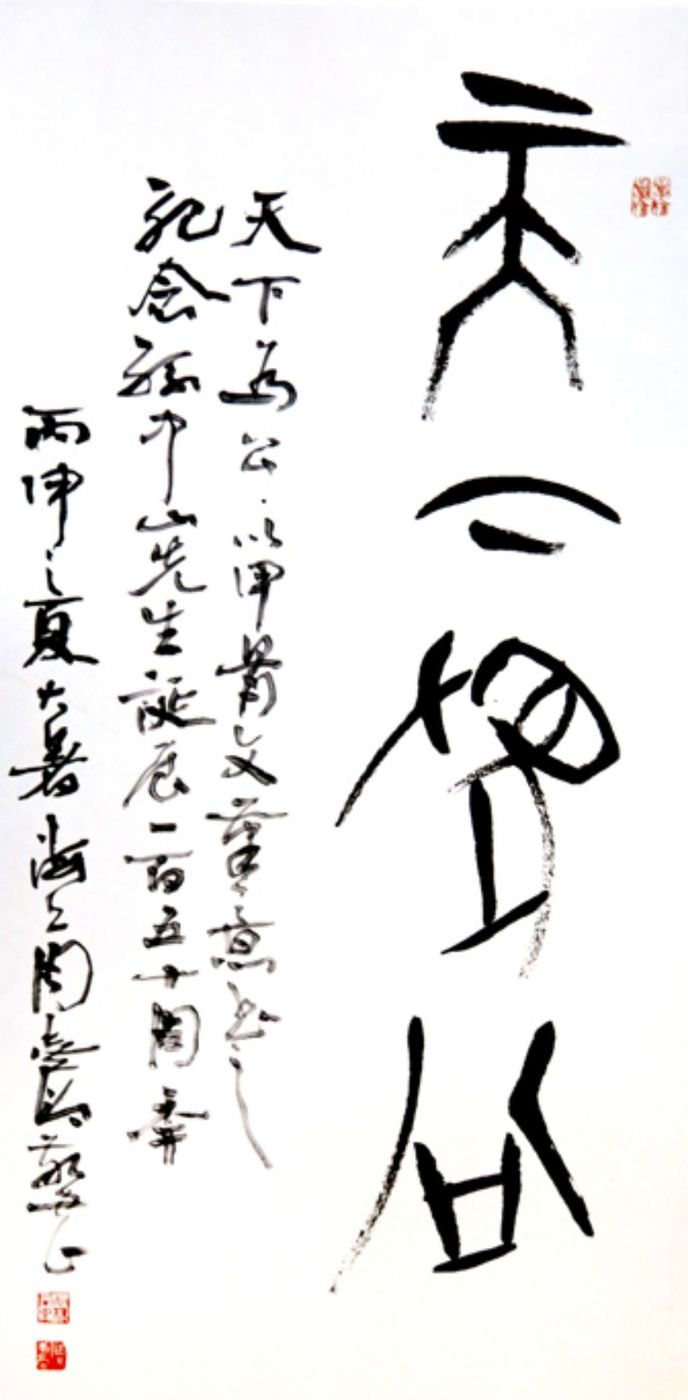 天下為公
天下為公以甲骨文筆意書之
紀念孫中山先生誕辰一百五十周年
丙申之夏大暑海上周